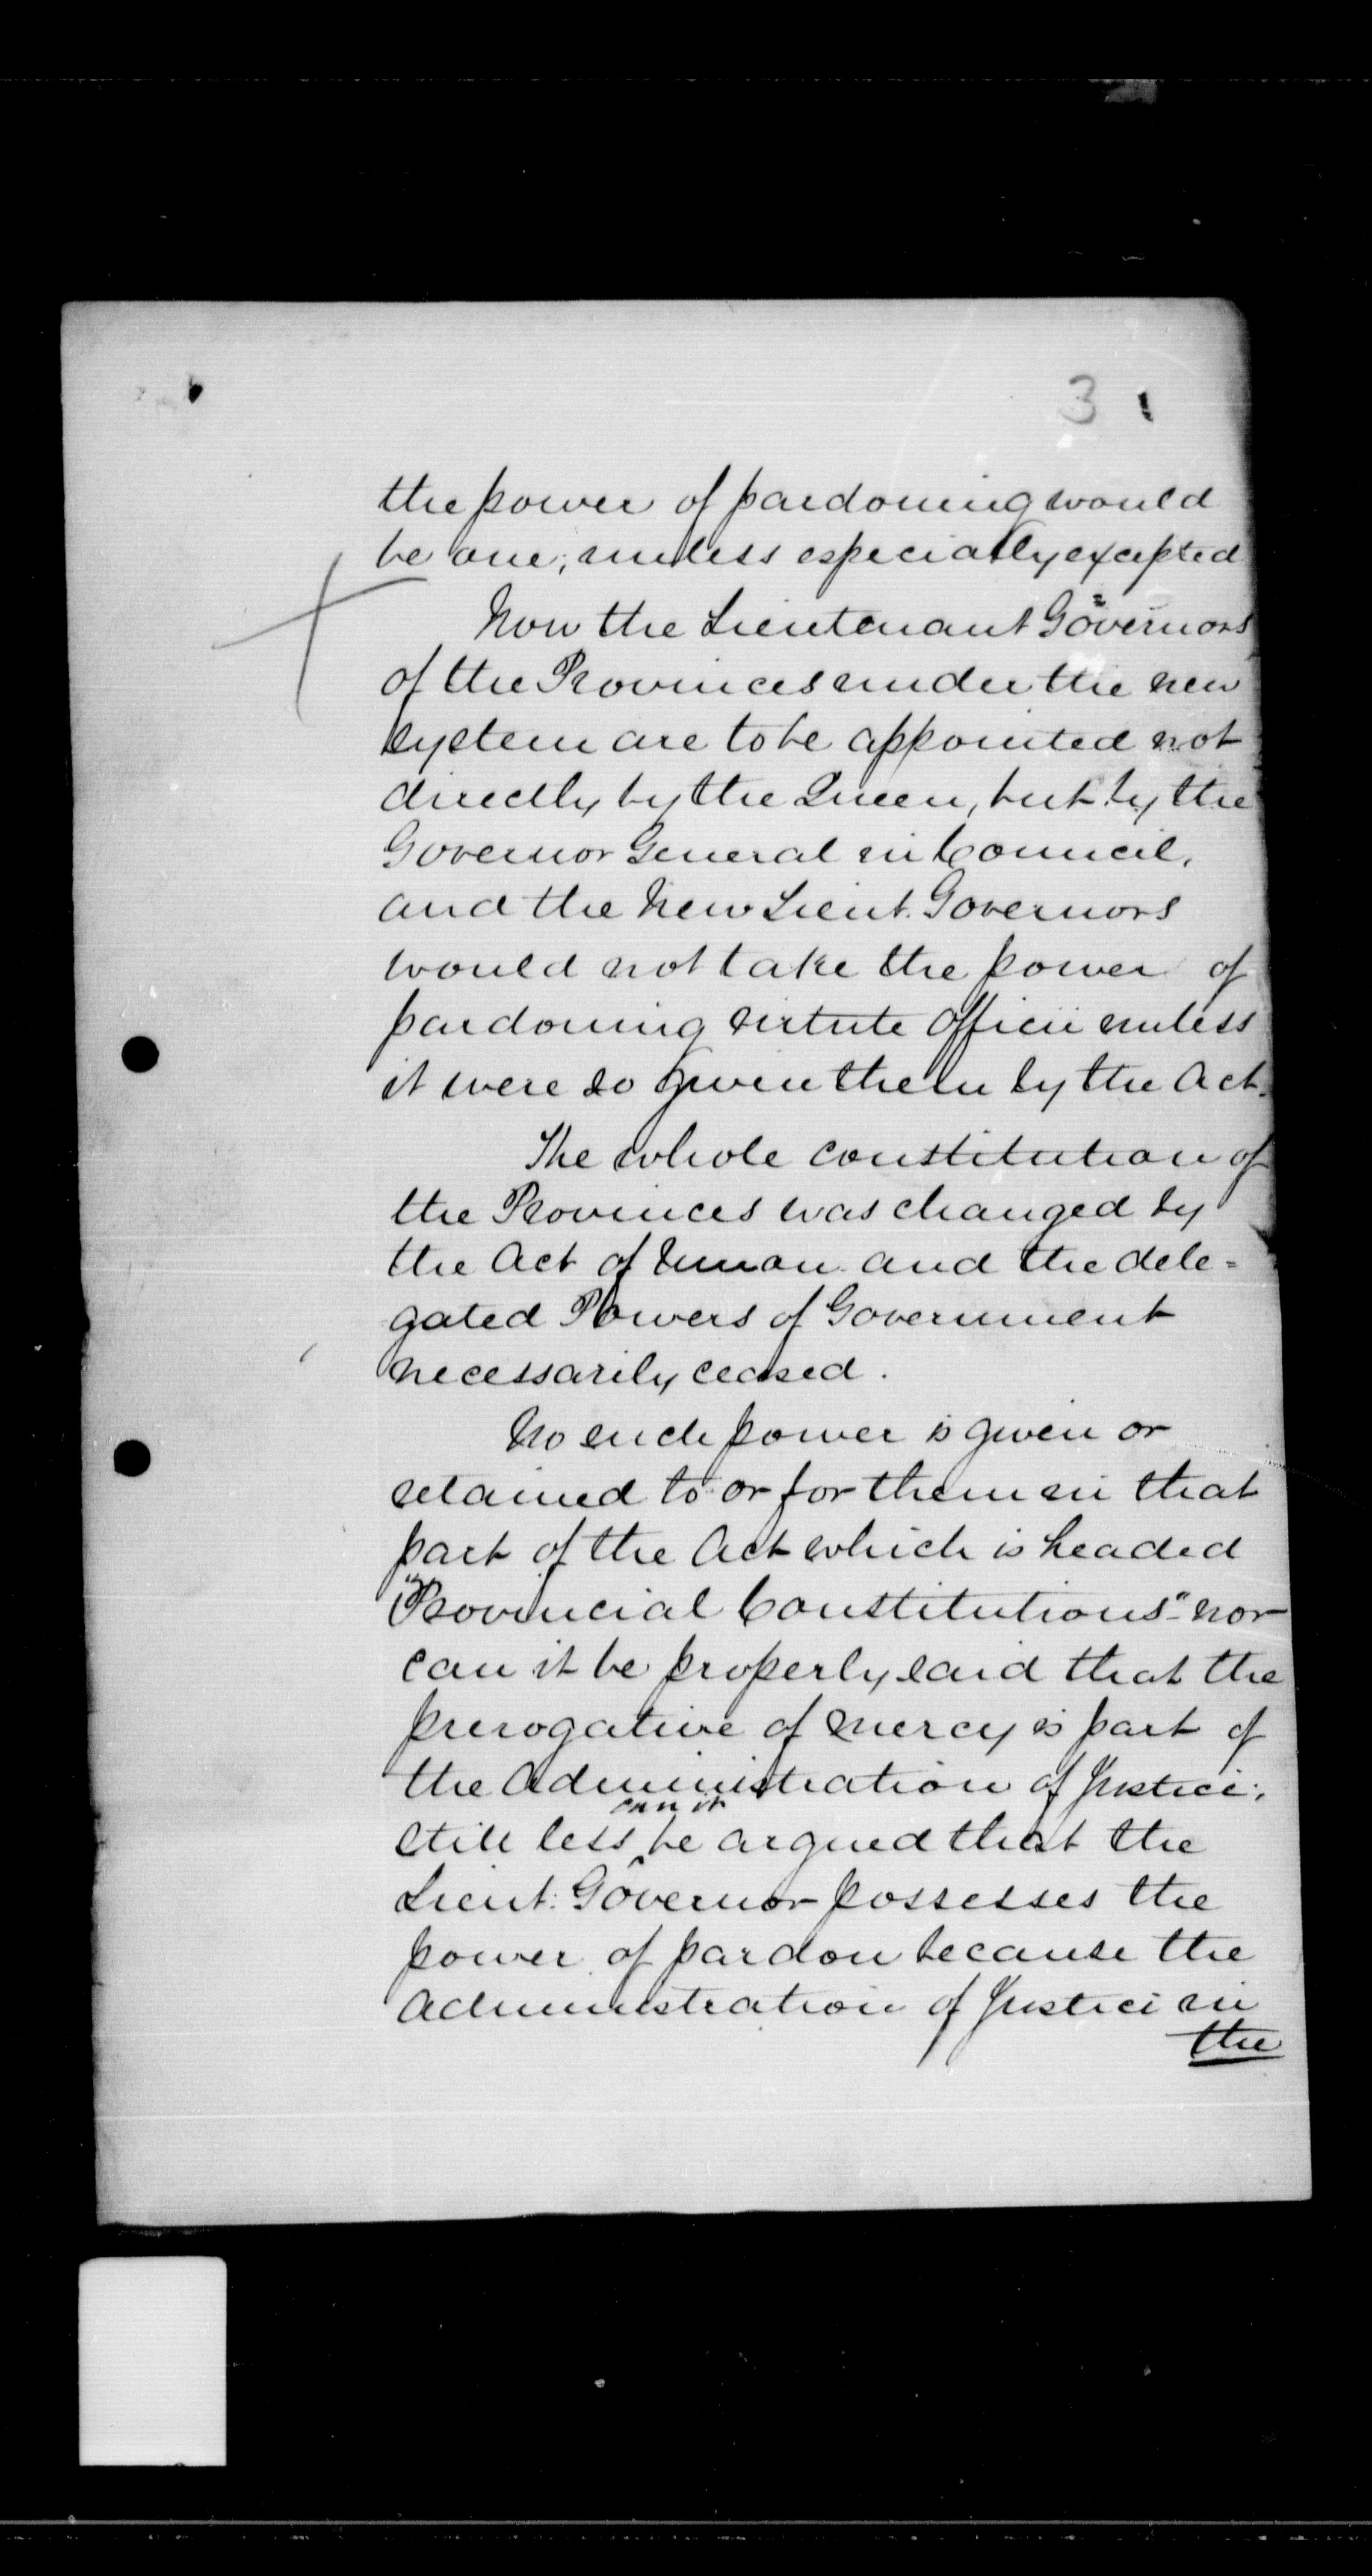 3
the power of pardoning would
be one; unless especially excepted
Now the Lieutenant Governors
of the Provinces under the new
system are to be appointed not
directly by the Queen, but by the
Governor General in Council,
and the New Lieut. Governors
would not take the power of
pardoning virtute officii unless
it were so given them by the Act.
The whole constitution of
the Provinces was changed by
the Act of Union and the dele=
gated Powers of Government
necessarily ceased.
No such power is given or
retained to or for them in that
part of the Act which is headed
"Provincial Constitutions" nor
can it be properly said that the
prerogative of mercy is part of
the Administration of Justice;
can it
still less be argued that the
Lieut: Governor possesses the
power of pardon because the
Administration of Justice in
the